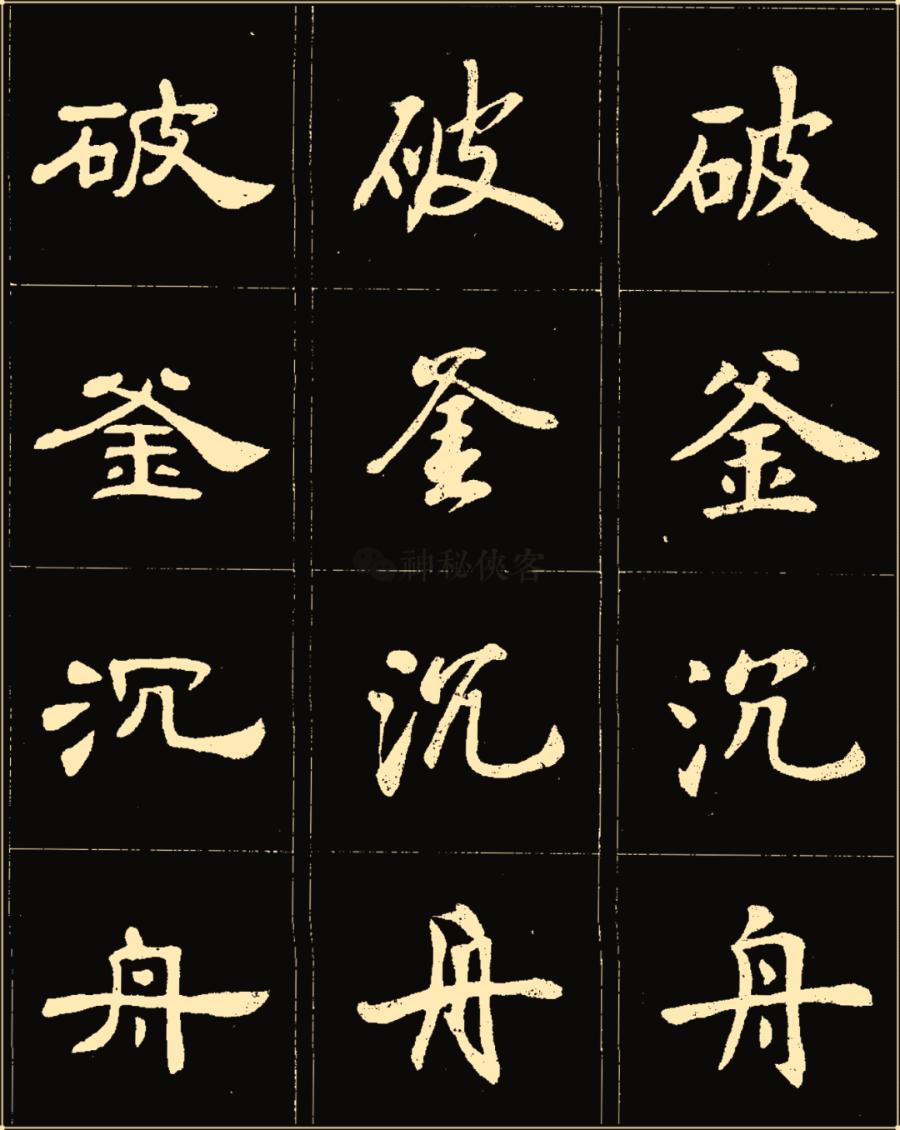 破釜沉舟
破釜沉舟
破釜沉舟
神秘侠客